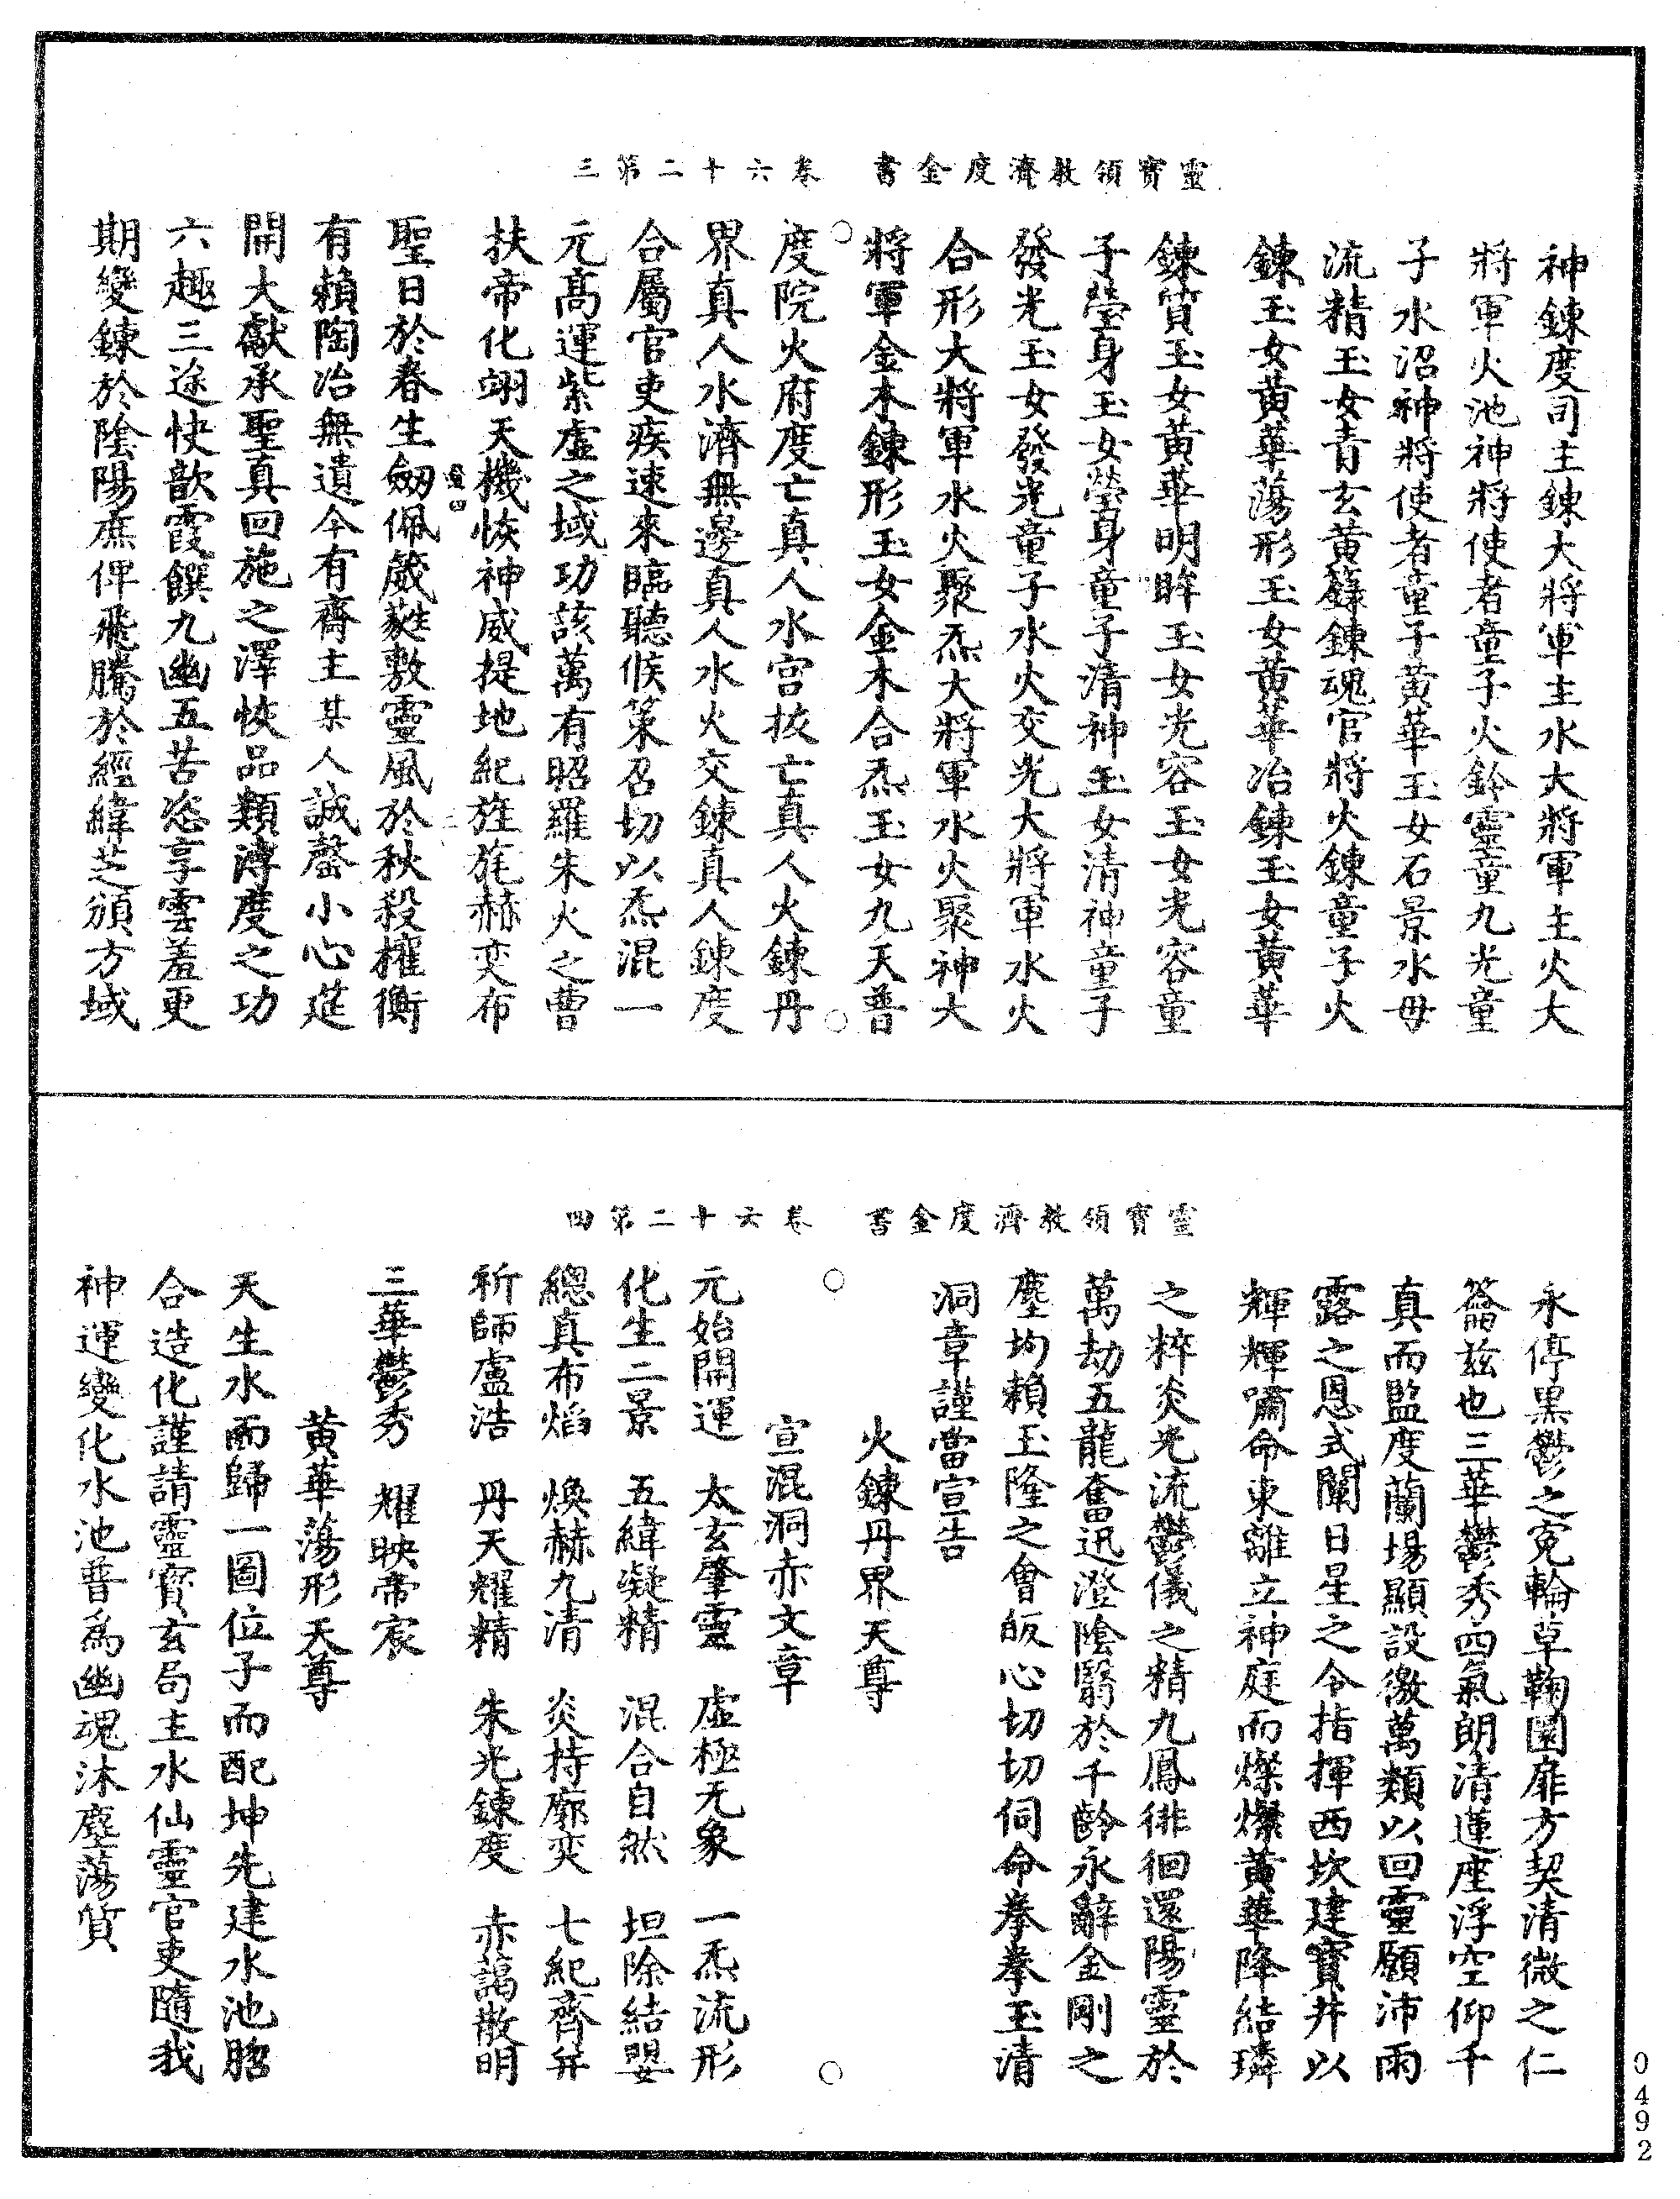 靈寶領教濟度金書　卷六十二第三
神鍊度司主鍊大將軍主水大將軍主火大
將軍火池神將使者童子火鈴靈童九光童
子水沼神將使者童子黃華玉女石景水母
流精玉女青玄黃籙鍊魂官將火鍊童子火
鍊玉女黃華蕩形玉女黃華冶鍊玉女黃華
鍊質玉女黃華明眸玉女光容玉女光容童
子瑩身玉女瑩身童子清神玉女清神童子
發光玉女發光童子水火交光大將軍水火
合形大將軍水火聚炁大將軍水火聚神大
將軍金木鍊形玉女金木合炁玉女九天普
度院火府度亡真人水宮拔亡真人火鍊丹
界真人水濟無邊真人水火交鍊真人鍊度
合屬官吏疾速來臨聽候策召切以炁混一
元高運紫虛之域功該萬有昭羅朱火之曹
扶帝化翊天機恢神威提地紀旌旄赫奕布
聖日於春生劒佩葳蕤敷靈風於秋殺權衡
有賴陶冶無遺今有齋主某人誠罄小心莚
開大獻承聖真回施之澤恢品類溥度之功
六趣三途快歆霞饌九幽五苦恣享雲羞更
期變鍊於陰陽庶俾飛騰於經緯芝頒方域
靈寶領教濟度金書　卷六十二第四
永停黑鬱之寃輪草鞠圜扉方契清微之仁
籥茲也三華鬱秀四氣朗清蓮座浮空仰千
真而監度蘭場顯設徹萬類以回靈願沛雨
露之恩式闡日星之令指揮西坎建寶井以
輝輝嘯命東離立神庭而燦燦黃華降結璘
之粹炎光流鬱儀之精九鳳徘徊還陽靈於
萬劫五龍奮迅澄陰翳於千齡永辭金剛之
塵均賴玉隆之會皈心切切伺命拳拳玉清
洞章謹當宣告
火鍊丹界天尊
宣混洞赤文章
元始開運　太玄肇靈　虛極无象　一炁流形
化生二景　五緯凝精　混合自然　坦除結嬰
總真布焰　煥赫九清　炎持廓奕　七紀齊并
祈師盧浩　丹天耀精　朱光鍊度　赤謁散明
三華鬱秀　耀映帝宸
黃華蕩形天尊
天生水而歸一圖位子而配坤先建水池脗
合造化謹請靈寶玄局主水仙靈官吏隨我
神運變化水池普為幽魂沐塵蕩質
0492